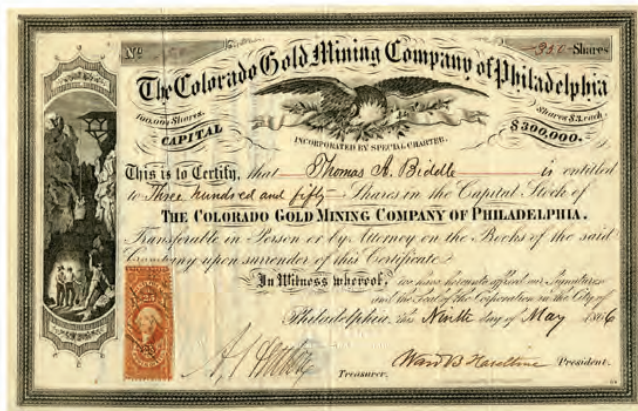 No 350 Shares
The Colorado Gold Mining Company of Philadelphia
100,000 Shares. Shares $3. each
CAPITAL $300,000.
INCORPORATED BY SPECIAL CHARTER.
This is to Certify, that Thomas A. Biddle is entitled
to Three hundred and fifty Shares in the Capital Stock of
THE COLORADO GOLD MINING COMPANY OF PHILADELPHIA.
Transferable in Person or by Attorney on the Books of the said
Company upon surrender of this Certificate
In Witness whereof, we have hereunto affixed our Signatures
and the Seal of the Corporation in the City of
Philadelphia this Ninth day of May 1866
Ward B Haseltine President.
Treasurer.
25